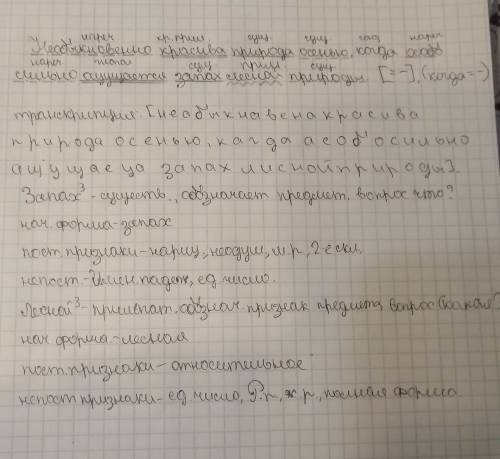 нареч кр.прил. сущ сущ союз нареч
Необыкновенно красива природа осенью, когда особо
нареч. глагол сущ прил сущ
сильно ощущается запах лесной природы. [=-], (когда=-)
транскрипция: [н е о б ы к н а в е н а к р а с и в а
п р и р о д а о с е н ь ю, к а г д а а с о б о с и л ь н о
а щ у щ а е ц о з а п а х л и с н о й п р и р о д ы].
Запах³ - существ., обозначает предмет, вопрос что?
нач. форма - запах
пост признаки - нариц., неодуш, м.р, 2-е скл.
непост - Имен. падеж, ед. число.
Лесной³ - прилагат. обознач. признак предмета, вопрос (какой?)
нач форма - лесная
пост. признаки - относительное
непост признаки - ед. число, Р.п, ж.р., полная форма.